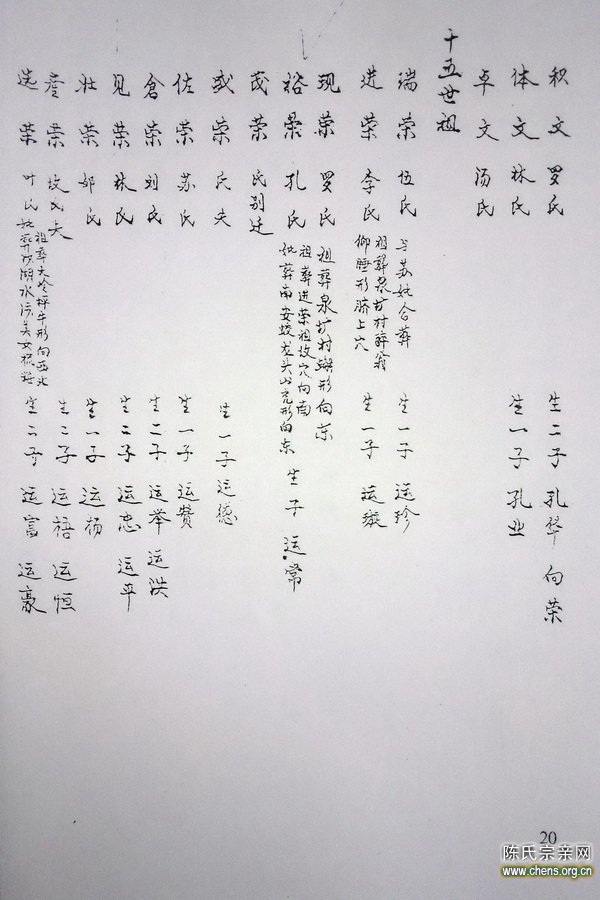 积文 罗氏 生二子 孔华 向荣
体文 林氏 生一子 孔业
卓文 汤氏
十五世祖
瑞荣 伍氏 与苏妣合葬 生一子 运珍
进荣 李氏 祖葬泉圹村醉翁仰睡形脐上穴 生一子 运璇
现荣 罗氏 祖葬泉圹村蝴形向东
裕荣 孔氏 祖葬进荣祖坟穴向南 妣葬南安蛟龙头山兜形向东 生子 运常
茂荣 氏别迁
成荣 氏失 生一子 运德
佐荣 苏氏 生一子 运赞
仓荣 刘氏 生二子 运举 运洪
见荣 林氏 生二子 运忠 运平
壮荣 邹氏 生一子 运杨
荣 氏失 生二子 运梧 运恒
选荣 叶氏 祖葬大岭坪牛形向西北 妣葬湖水污美女梳妆 生二子 运富 运豪
20
陈氏宗亲网
www.chens.org.cn